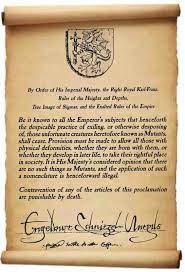 By Order of His Imperial Majesty, the Right Royal Karl-Franz,
Ruler of the Heights and Depths,
True Image of Sigmar, and the Exalted Ruler of the Empire
Be it known to all the Emperor's subjects that henceforth
the despicable practice of exiling, or otherwise disposing
of, those unfortunate creatures heretofore known as Mutants,
shall cease. Provision must be made to allow all those with
physical deformities, whether they are born with them, or
whether they develop in later life, to take their rightful place
in society. It is His Majesty's considered opinion that there
are no such things as Mutants, and the application of such
a nomenclature is henceforward illegal.
Contravention of any of the articles of this proclamation
are punishable by death.